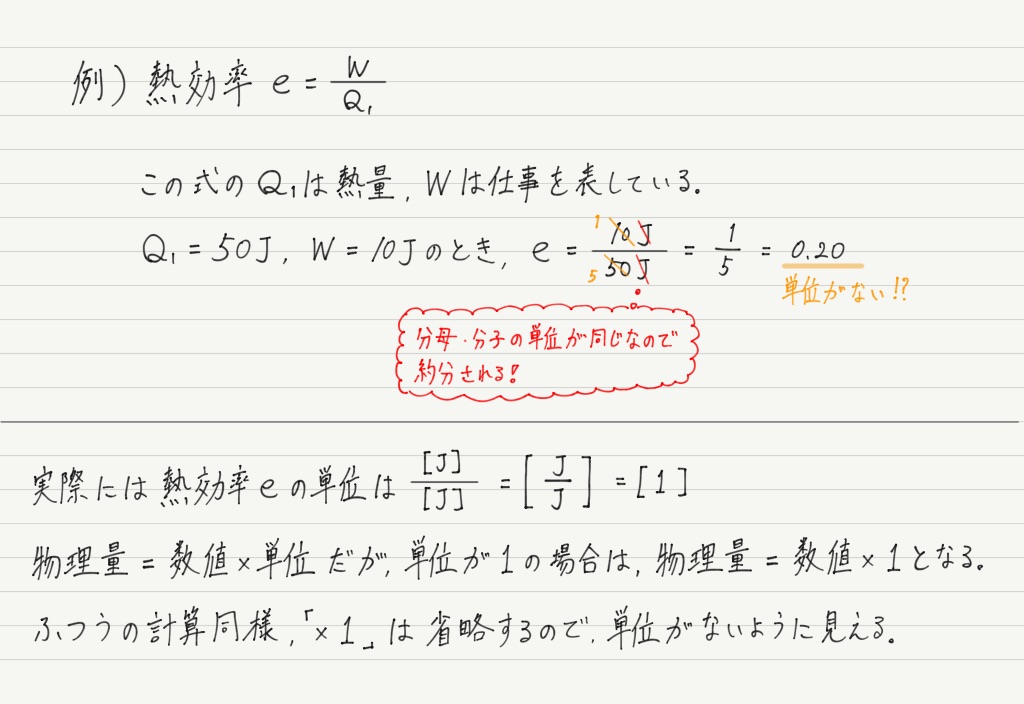 例) 熱効率 e = W/Q₁
この式のQ₁は熱量, Wは仕事を表している.
Q₁ = 50J, W = 10Jのとき, e = 10J/50J = 1/5 = 0.20
1
5
単位がない!?
分母・分子の単位が同じなので
約分される!
実際には熱効率eの単位は [J]/[J] = [J/J] = [1]
物理量 = 数値×単位 だが, 単位が1の場合は, 物理量 = 数値×1となる.
ふつうの計算同様,「×1」は省略するので, 単位がないように見える.